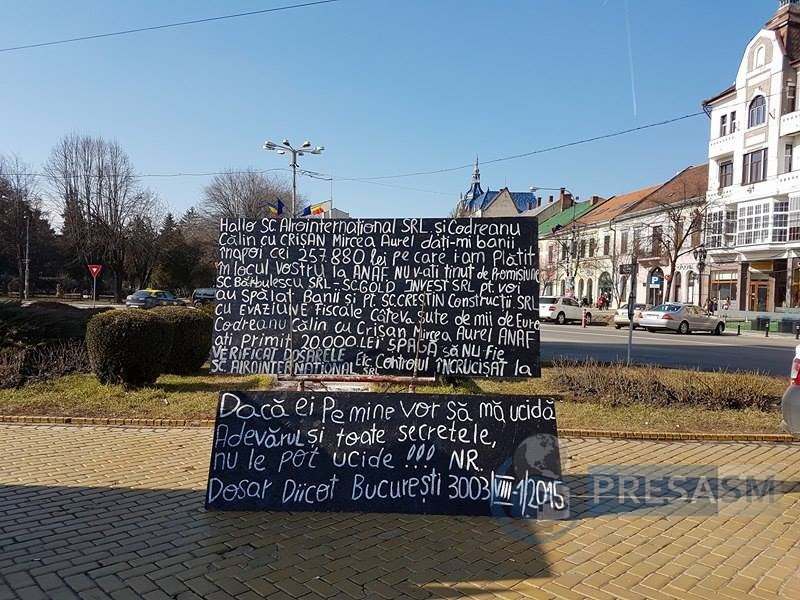 Hallo SC AiroInternațional SRL și Codreanu
Călin cu CRIȘAN Mircea Aurel dați-mi banii
înapoi cei 257.880 lei pe care i-am plătit
în locul vostru la ANAF NU v-ati ținut de Promisiune
SC Bărbulescu SRL-SCGOLD INVEST SRL pt. voi
au spălat Banii și Pt. SC CREȘTIN Construcții SRL
cu EVAZIUNE fiscale Câteva sute de mii de Euro
Codreanu Călin cu Crișan Mircea Aurel ANAF
ați Primit 20.000 LEI ȘPAGĂ să NU fie
VERIFICAT DOSARELE Etc Controlul ÎNCRUCIȘAT la
SC AIROINTERNAȚIONAL SRL
Dacă ei Pe mine Vor să mă ucidă
Adevărul și toate secretele,
nu le pot ucide !!! NR.
Dosar Diicot București 3003/VIII-1/2015
PRESASM